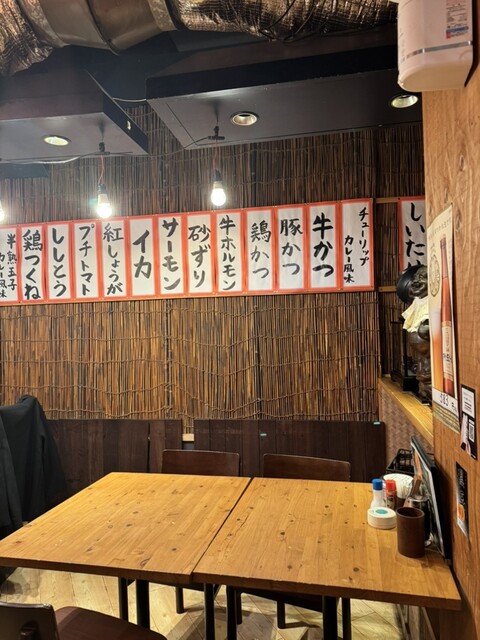 チューリップ
カレー風味
牛かつ
豚かつ
鶏かつ
牛ホルモン
砂ずり
サーモン
イカ
紅しょうが
プチトマト
ししとう
鶏つくね
半熟玉子
カレー風味
しいた